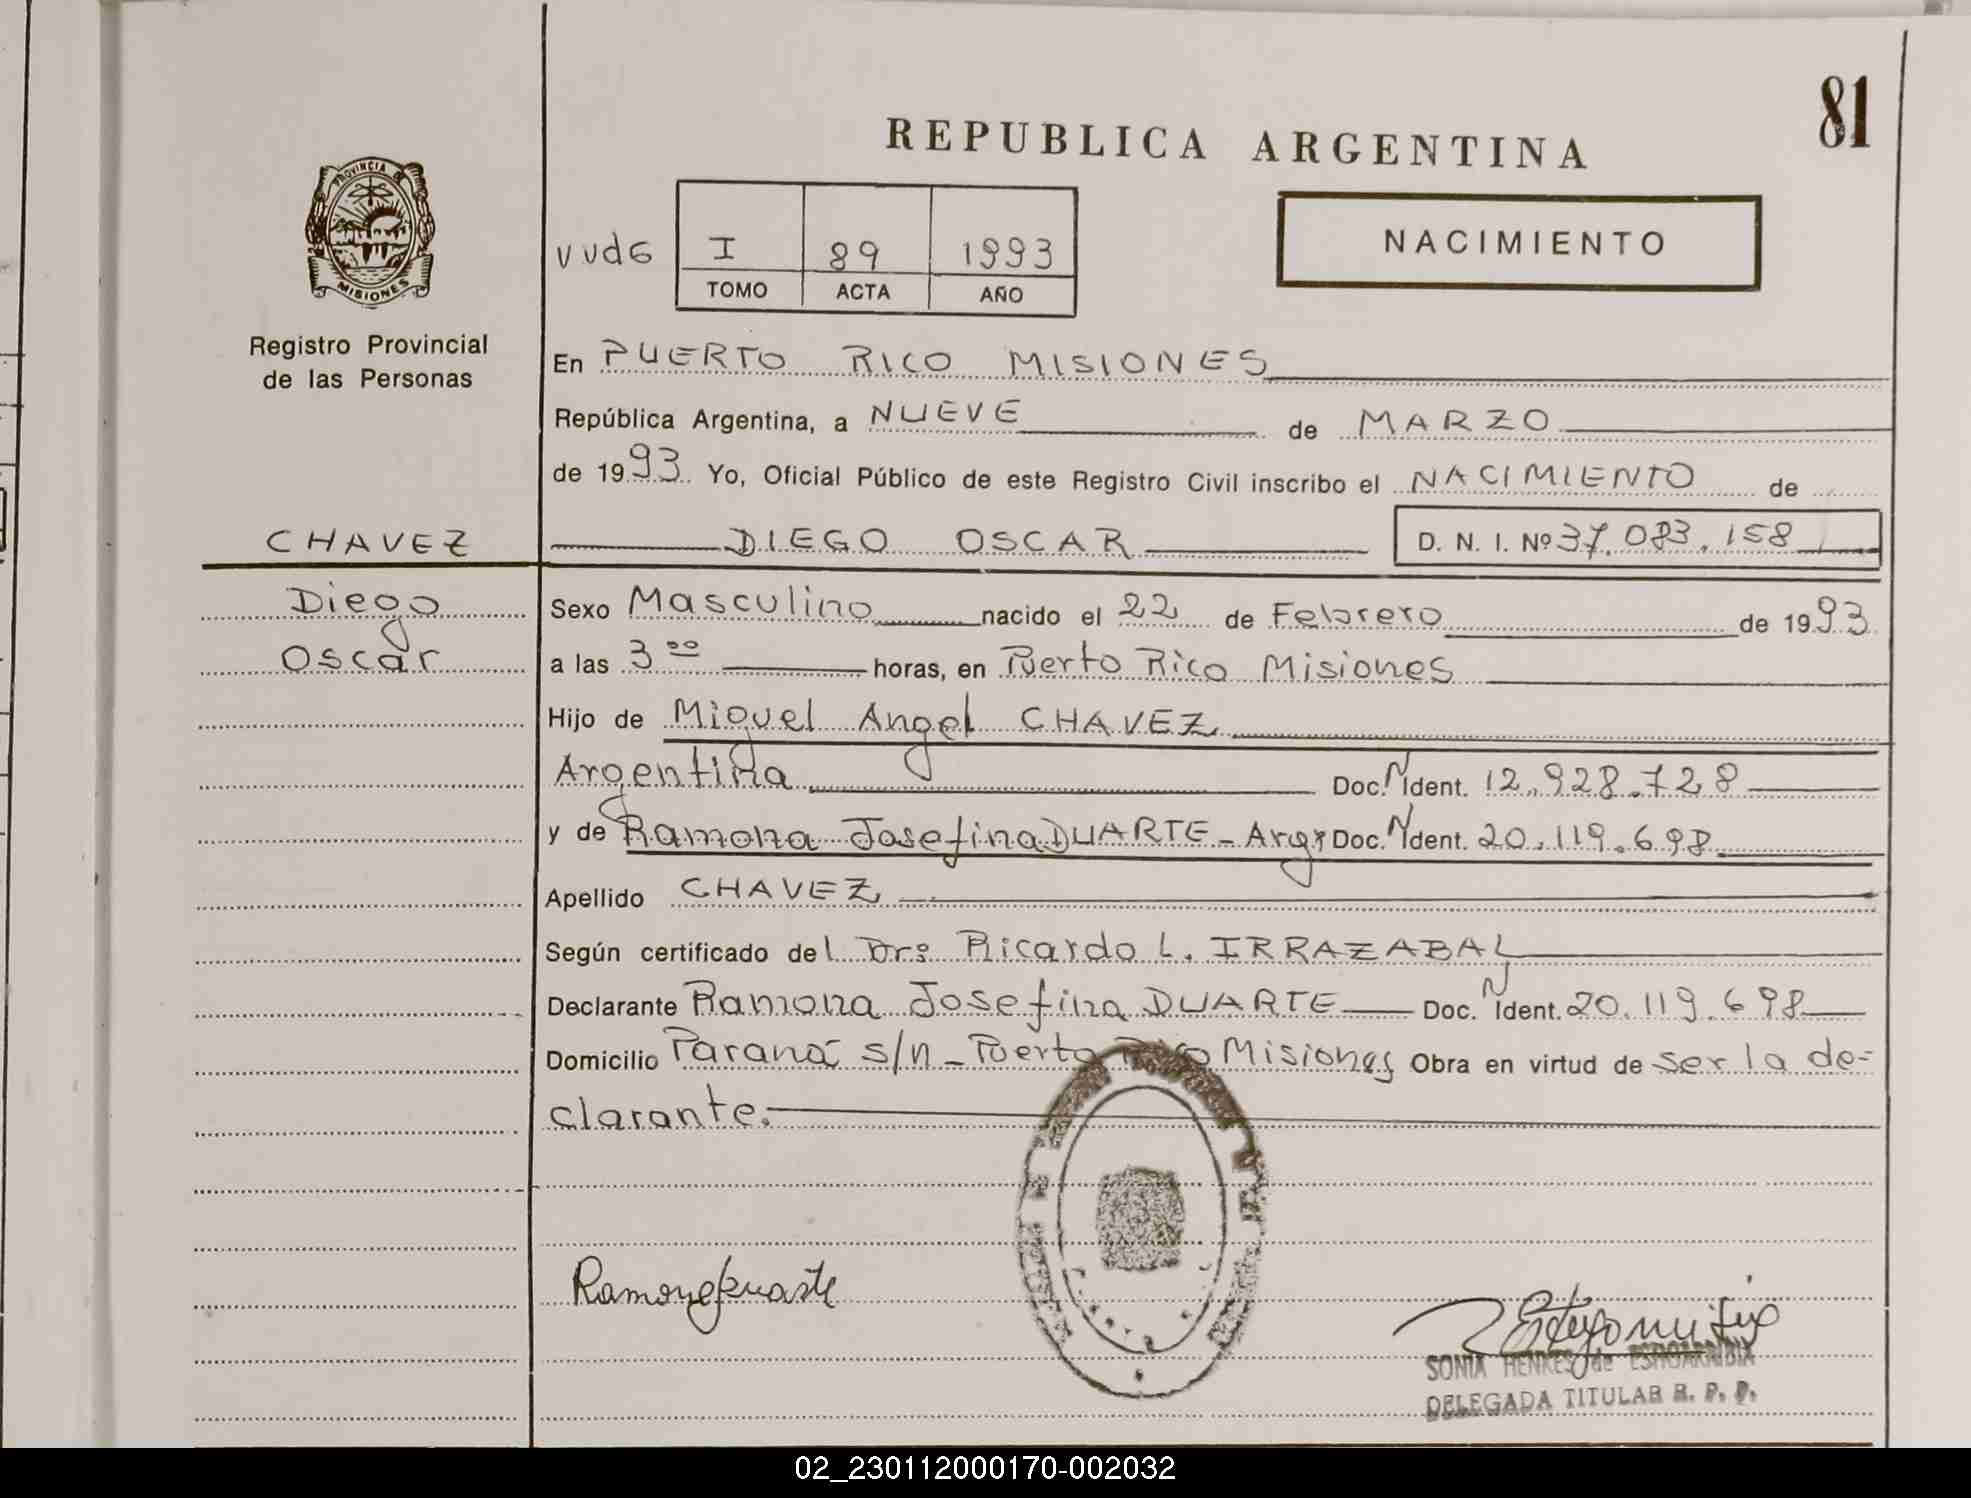 81
REPUBLICA ARGENTINA
PROVINCIA DE
MISIONES
Registro Provincial
de las Personas
I 89 1993
TOMO ACTA AÑO
NACIMIENTO
En PUERTO RICO MISIONES
República Argentina, a NUEVE de MARZO
de 1993. Yo, Oficial Público de este Registro Civil inscribo el NACIMIENTO de
CHAVEZ
DIEGO OSCAR D. N. I. Nº 37.083.158
Diego
Oscar
Sexo Masculino nacido el 22 de Febrero de 1993
a las 3 00 horas, en Puerto Rico Misiones
Hijo de Miguel Angel CHAVEZ
Argentina Doc. N Ident. 12.928.728
y de Ramona Josefina DUARTE - Arg. Doc. N Ident. 20.119.698
Apellido CHAVEZ
Según certificado del Dr: Ricardo L. IRRAZABAL
Declarante Ramona Josefina DUARTE Doc. N Ident. 20.119.698
Domicilio Paraná s/n - Puerto Rico Misiones Obra en virtud de ser la de-
clarante.
SONIA HENKES de
DELEGADA TITULAR R. P. P.
02_230112000170-002032